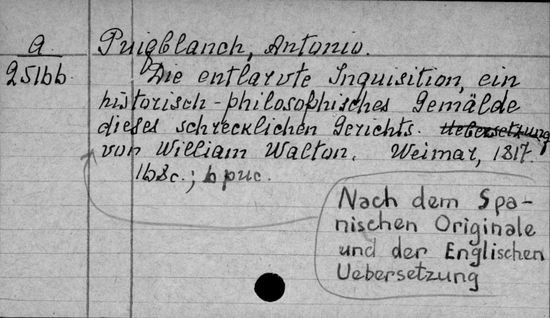 a
251bb
Puigblanch, Antonio.
Die entlarvte Inquisition, ein
historisch-philosophisches Gemälde
dieses schrecklichen Gerichts. Uebersetzung
von William Walton. Weimar, 1817.
168c.; 6 рис.
Nach dem Spa-
nischen Originale
und der Englischen
Uebersetzung